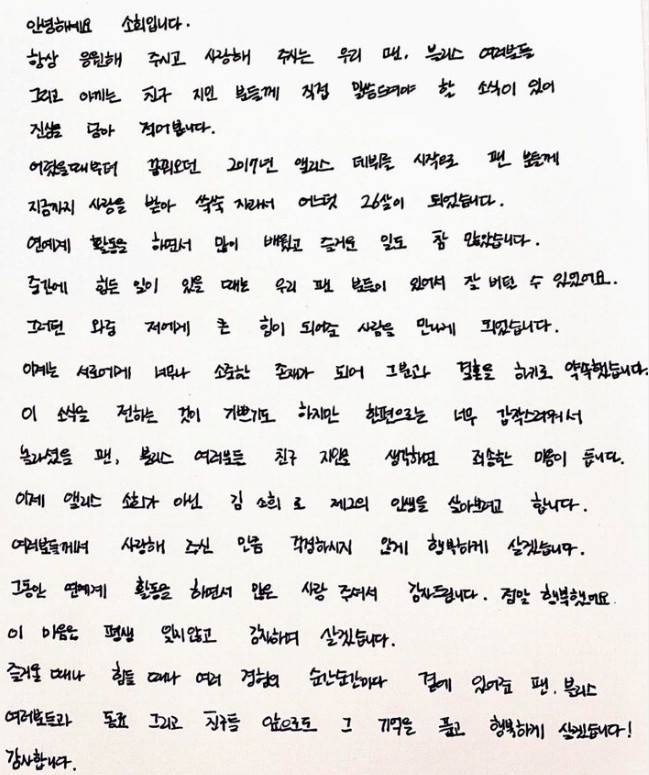 안녕하세요 소희입니다.
항상 응원해 주시고 사랑해 주시는 우리 팬, 블리스 여러분들
그리고 아끼는 친구 지인 분들께 직접 말씀드려야 할 소식이 있어
진심을 담아 적어봅니다.
어렸을때부터 꿈꿔오던 2017년 앨리스 데뷔를 시작으로 팬 분들께
지금까지 사랑을 받아 쑥쑥 자라서 어느덧 26살이 되었습니다.
연예계 활동을 하면서 많이 배웠고 즐거운 일도 참 많았습니다.
중간에 힘든 일이 있을 때는 우리 팬 분들이 있어서 잘 버틸 수 있었어요.
그러던 와중 저에게 큰 힘이 되어준 사람을 만나게 되었습니다.
이제는 서로에게 너무나 소중한 존재가 되어 그분과 결혼을 하기로 약속했습니다.
이 소식을 전하는 것이 기쁘기도 하지만 한편으로는 너무 갑작스러워서
놀라셨을 팬, 블리스 여러분들 친구 지인을 생각하면 죄송한 마음이 듭니다.
이제 앨리스 소희가 아닌 김 소희 로 제2의 인생을 살아보려고 합니다.
여러분들께서 사랑해 주신 만큼 걱정하시지 않게 행복하게 살겠습니다.
그동안 연예계 활동을 하면서 많은 사랑 주셔서 감사드립니다. 정말 행복했어요
이 마음은 평생 잊지않고 감사하며 살겠습니다.
즐거울 때나 힘들 때나 여러 경험의 순간순간마다 곁에 있어준 팬. 블리스
여러분들과 동료 그리고 친구들 앞으로도 그 기억을 품고 행복하게 살겠습니다!
감사합니다.